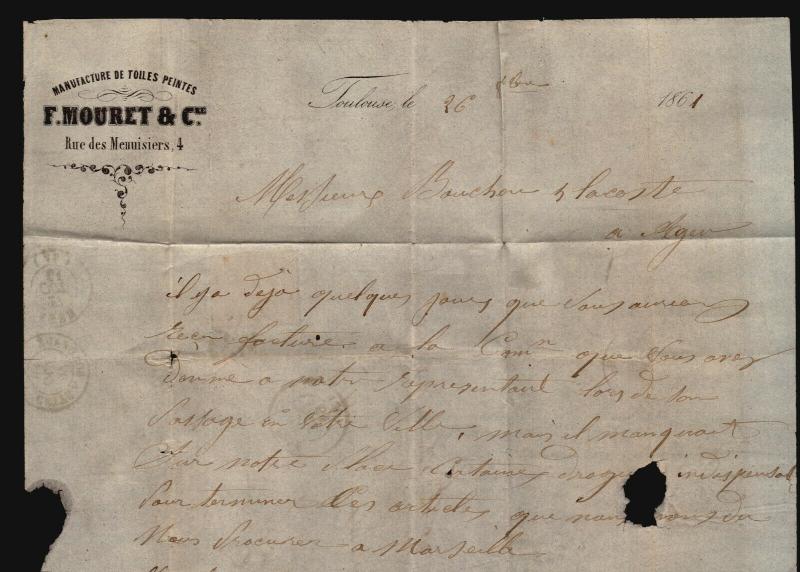 MANUFACTURE DE TOILES PEINTES
F. MOURET & Cie
Rue des Menuisiers, 4
Toulouse, le 26 8bre 1861
Messieurs Bouchou & Lacoste
a Agen
il y a déja quelques jours que vous auriez
reçu facture a la Comn que vous avez
donné a notre representant lors de son
passage en votre ville, mais il manquait
sur notre place certaines drogues indispensabl
pour terminer ces articles que nous
nous procurer a Marseille